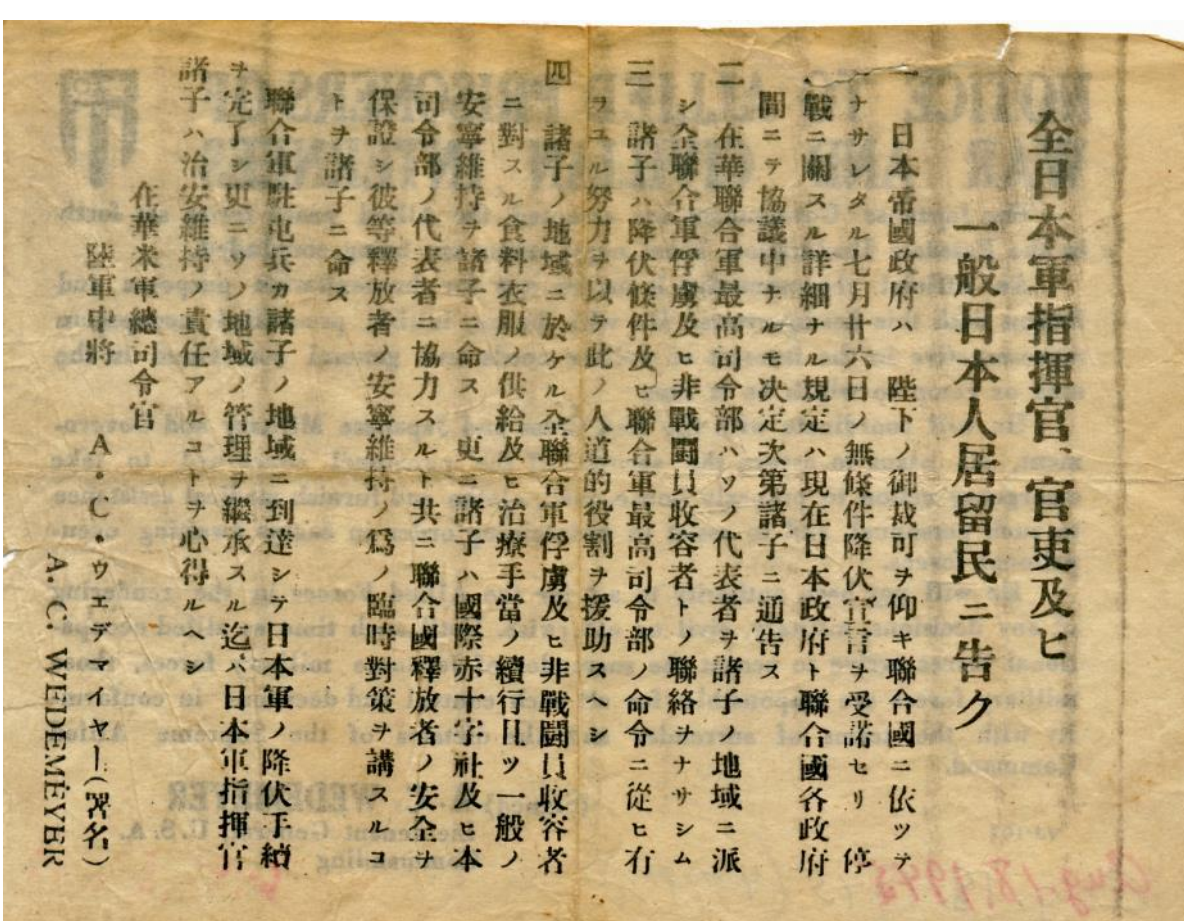 全日本軍指揮官、官吏及ヒ
一般日本人居留民ニ告ク
一 日本帝國政府ハ 陛下ノ御裁可ヲ仰キ聯合國ニ依ツテ
ナサレタル七月廿六日ノ無條件降伏宣言ヲ受諾セリ 停
戰ニ關スル詳細ナル規定ハ現在日本政府ト聯合國各政府
間ニテ協議中ナルモ決定次第諸子ニ通告ス
二 在華聯合軍最高司令部ハソノ代表者ヲ諸子ノ地域ニ派
シ全聯合軍俘虜及ヒ非戰鬭員收容者トノ聯絡ヲナサシム
三 諸子ハ降伏條件及ヒ聯合軍最高司令部ノ命令ニ從ヒ有
ラユル努力ヲ以テ此ノ人道的役割ヲ援助スヘシ
四 諸子ノ地域ニ於ケル全聯合軍俘虜及ヒ非戰鬭員收容者
ニ對スル食料衣服ノ供給及ヒ治療手當ノ續行且ツ一般ノ
安寧維持ヲ諸子ニ命ス 更ニ諸子ハ國際赤十字社及ヒ本
司令部ノ代表者ニ協力スルト共ニ聯合國釋放者ノ安全ヲ
保證シ彼等釋放者ノ安寧維持ノ爲ノ臨時對策ヲ講スルコ
トヲ諸子ニ命ス
聯合軍駐屯兵カ諸子ノ地域ニ到達シテ日本軍ノ降伏手續
ヲ完了シ更ニソノ地域ノ管理ヲ繼承スル迄ハ日本軍指揮官
諸子ハ治安維持ノ責任アルコトヲ心得ルヘシ
在華米軍總司令官
陸軍中將 A・C・ウェデマイヤー(署名)
A. C. WEDEMEYER